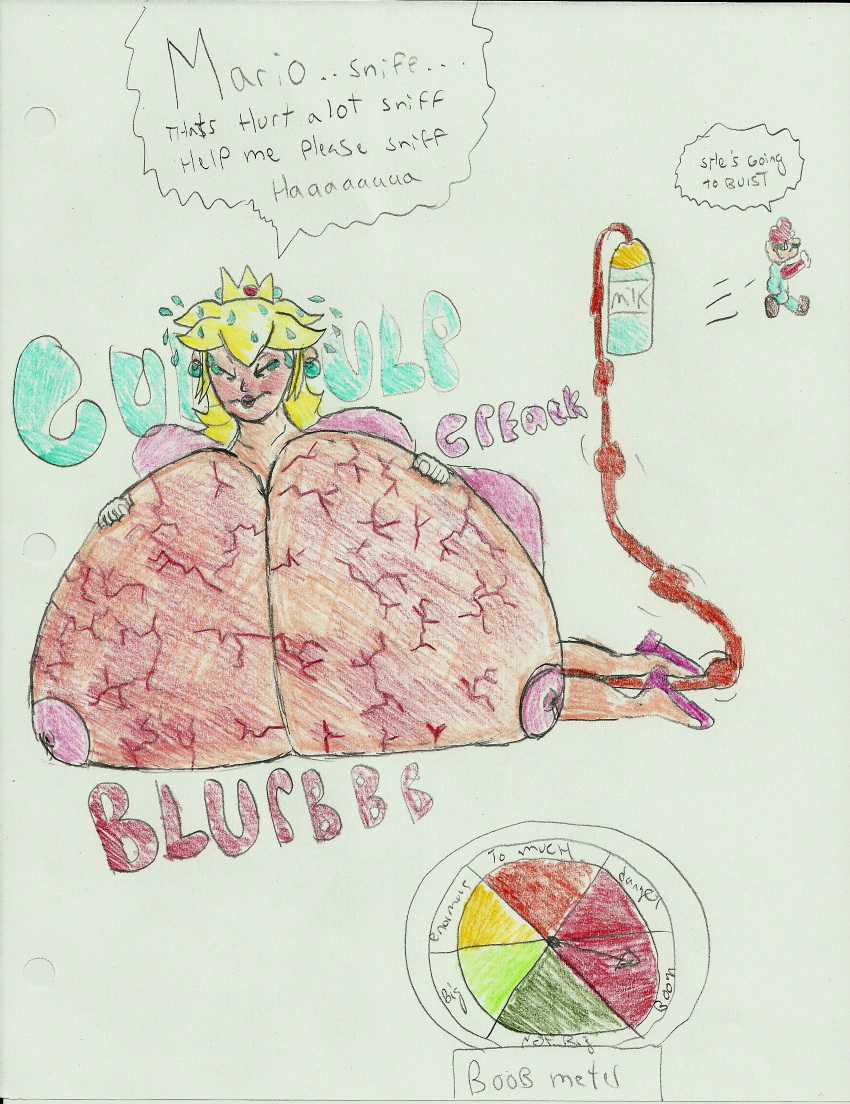 Mario..snife....
THAts Hurt alot sniff
Help me please sniff
Haaaaaaaa
SHe's Going
TO BUIST
milk
GUL ULP
CrEaak
BLUrBBB
To mucH
danger
enormous
Big
Boom
NOT Big
BOOB meter